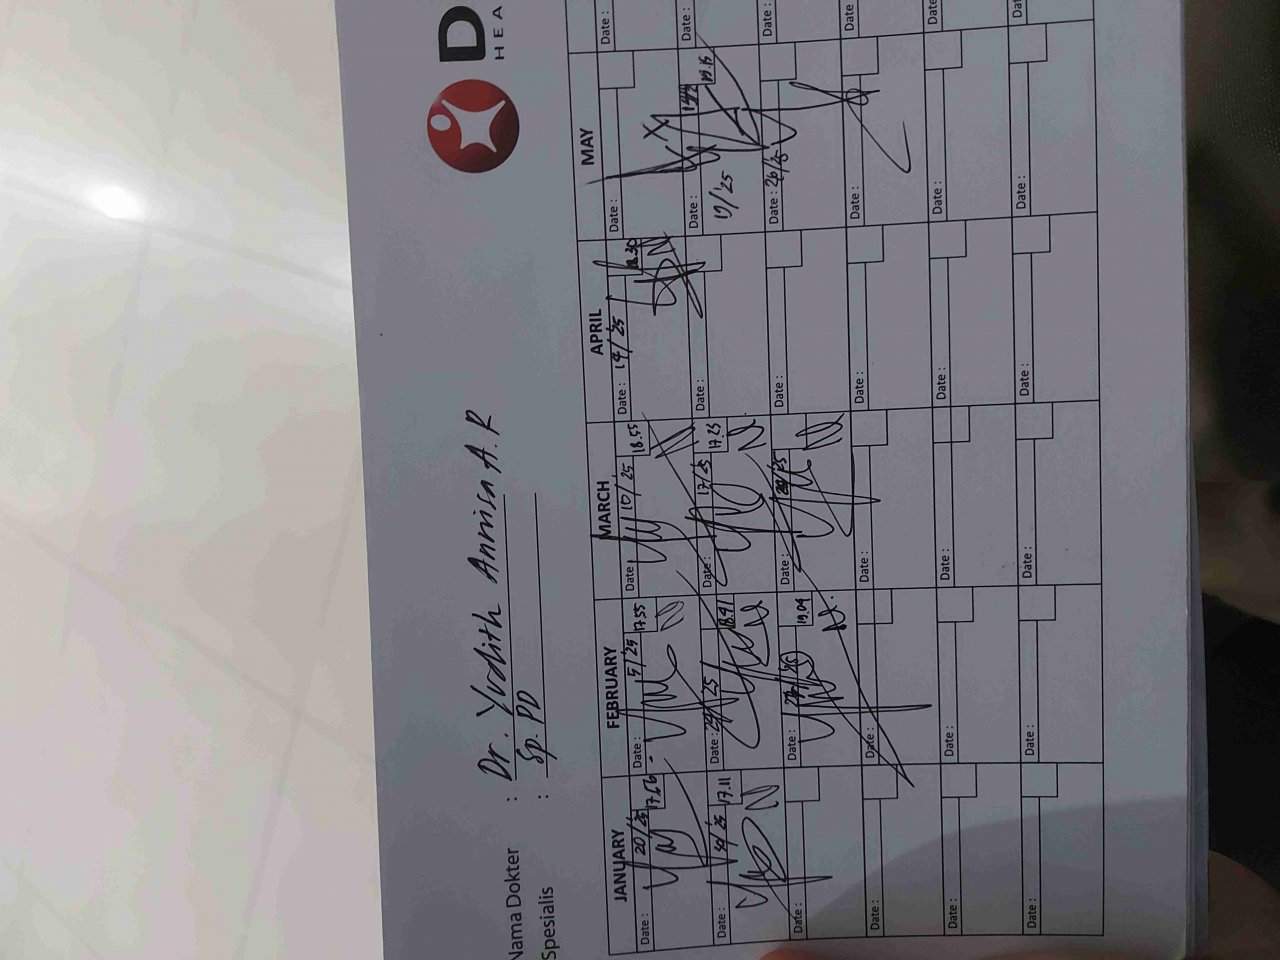 D
HEA
Nama Dokter : Dr. Yudith Annisa A.R
Spesialis : Sp.PD
JANUARY FEBRUARY MARCH APRIL MAY
Date : 20/25 Date : 5/25 17.55 Date : 10/25 18.55 Date : 14/25 18.30 Date : Date :
Date : 17.11 Date : 24/25 18.41 Date : 17/25 17.25 Date : Date : 19.15 Date :
17/25
Date : Date : 19.04 Date : Date : Date : 26/5 Date :
Date : Date : Date : Date : Date : Date :
Date : Date : Date : Date : Date : Date :
Date : Date : Date : Date : Date : Date :